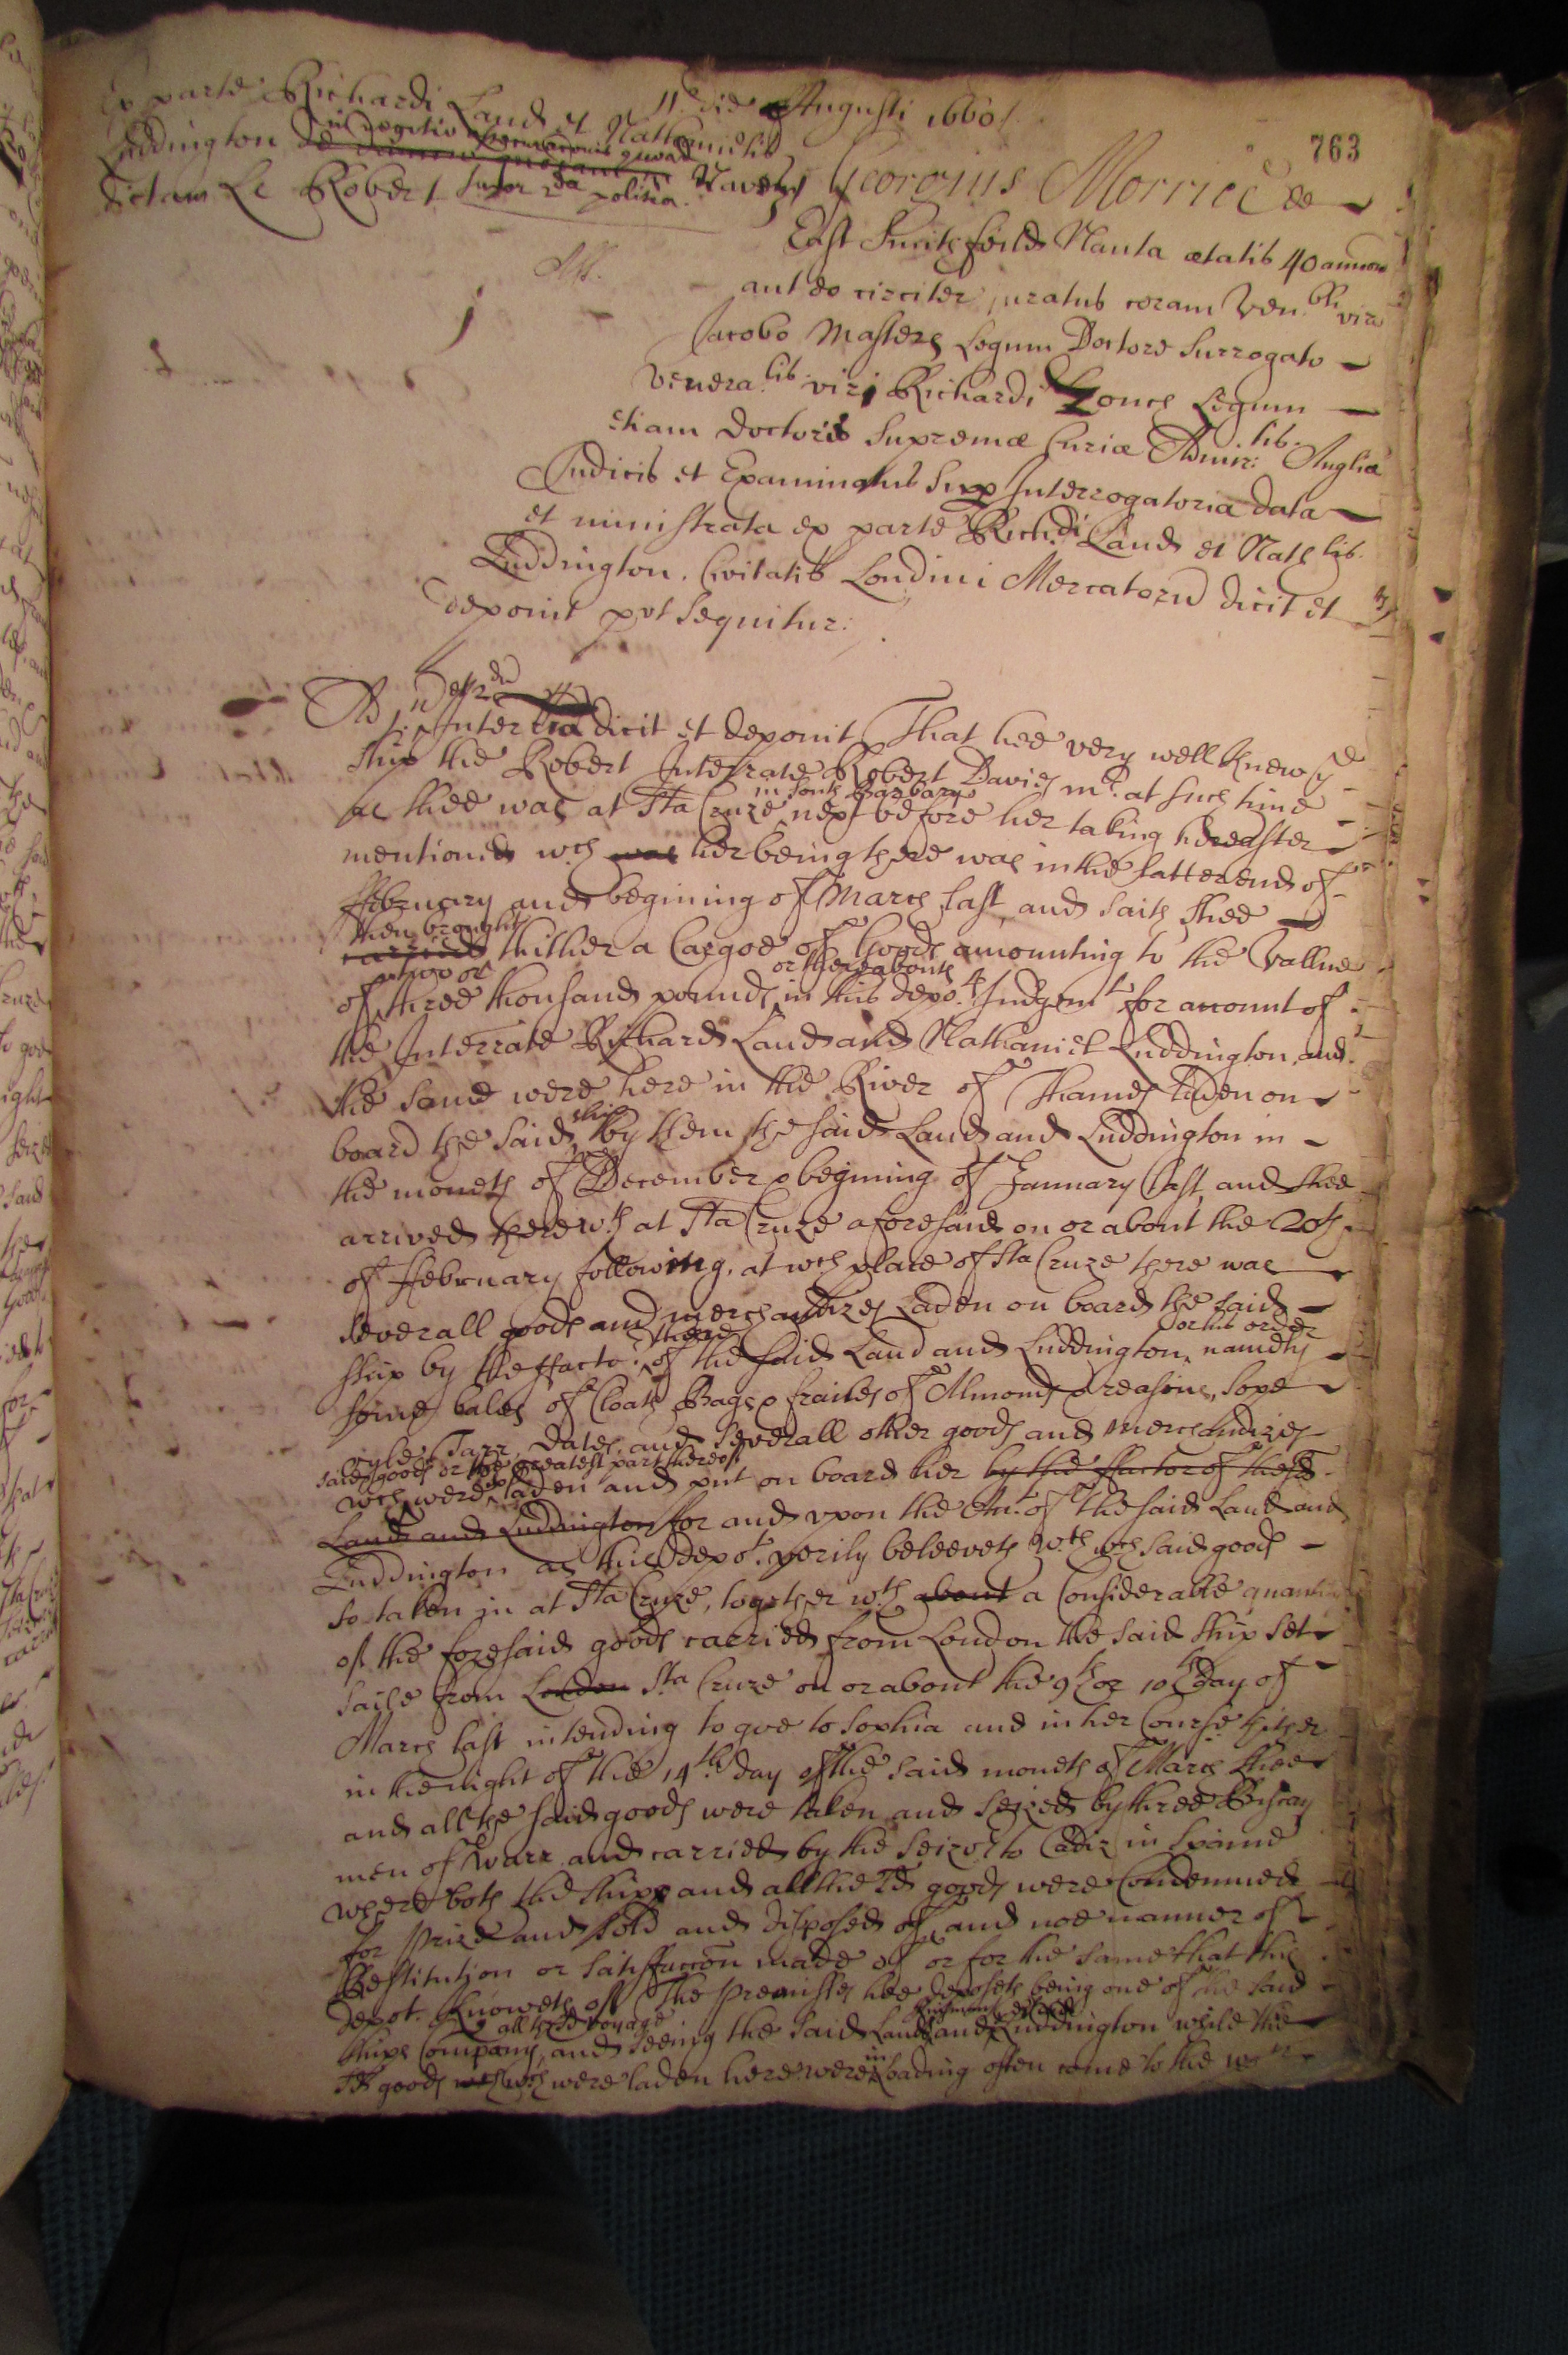 11o die Augusti 1660/.
763
Ex parte Richardi Land et Nathanielis
in negotio assecurationis quoad
Luddington de
dictam Le Robert super 2da polisia. Navem
Georgius Morrice de
East Smithfeild Nauta ætatis 40 annorum
aut eo circiter juratus coram Ven:bli viro
Jacobo Masters Legum Doctore Surrogato
Venera:lis viri Richardi Zouch Legum
etiam doctoris Supremæ Curiæ Admir:lis Angliæ
Judicis et Examinatus Supp Interrogatoria data
et ministrata ex parte Rich:di Land et Nath:lis
Luddington. Civitatis Londini Mercatorū dicit et
deponit pvt Sequitur:
Ad j. et 2du Inter: dicit et deponit That hee very well knew ye
ship the Robert Interrate Robert Davies mr. at such time
in South Barbary
as shee was at Sta Cruze next before her taking hereafter
mentioned wch was her being there was in the latter end of
ffebruary and begining of March last, and saith shee
then brought
carried thither a Cargoe of Goods amounting to the vallue
two or
or thereabouts
of three thousand pounds in this depots Judgemt for account of
the Interrate Richard Land and Nathaniel Luddington, and
the same were here in the River of Thames laden on
ship
board the said by them the said Land and Luddington in
the moneth of December & begining of January last, and shee
arrived therewth at Sta Cruze aforesaid on or about the 20th
of ffebruary following, at wch place of Sta Cruze there was
severall goods and merchandizes Laden on board the said
there
or his order
ship by the ffacto:r of the said Land and Luddington, namely
some bales of Cloath Bags & frailes of Almonds & reasins, Sope
oyle, Tarr, Dates, and severall other goods and merchandizes
said goods or the greatest part thereof
wch were laden and put on board her by the ffactor of the sd
Land and Luddington for and upon the Act. of the said Land and
Luddington as this depot. verily beleeveth wth wch said goods
so taken in at Sta Cruze, together wth about a Considerable quantity
of the foresaid goods carried from London the said ship set
saile from London Sta Cruze on or about the 9th or 10th day of
March last intending to goe to Sophia and in her Course thither
in the night of the 14th day of the said moneth of March shee
and all the said goods were taken and seized by three Biscay
men of Warr and carried by the Seizors to Cadiz in Spaine
where both the shipp and all the sd goods were Condemned
for Prize and sold and disposed of, and noe manner of
Restitution or satisfaccōn made of or for the same that this
depot. knoweth of. The Premisses hee deposeth being one of the said
all the sd voyage
ships Company, and seeing the said Land and Luddington while the
in
sd goods wch were laden here were Loading often come to the